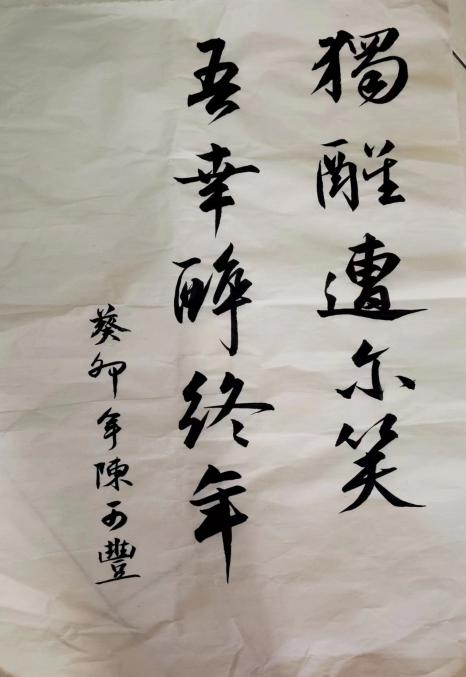 獨醒遭尔笑
吾幸醉終年
癸卯年陳可豐